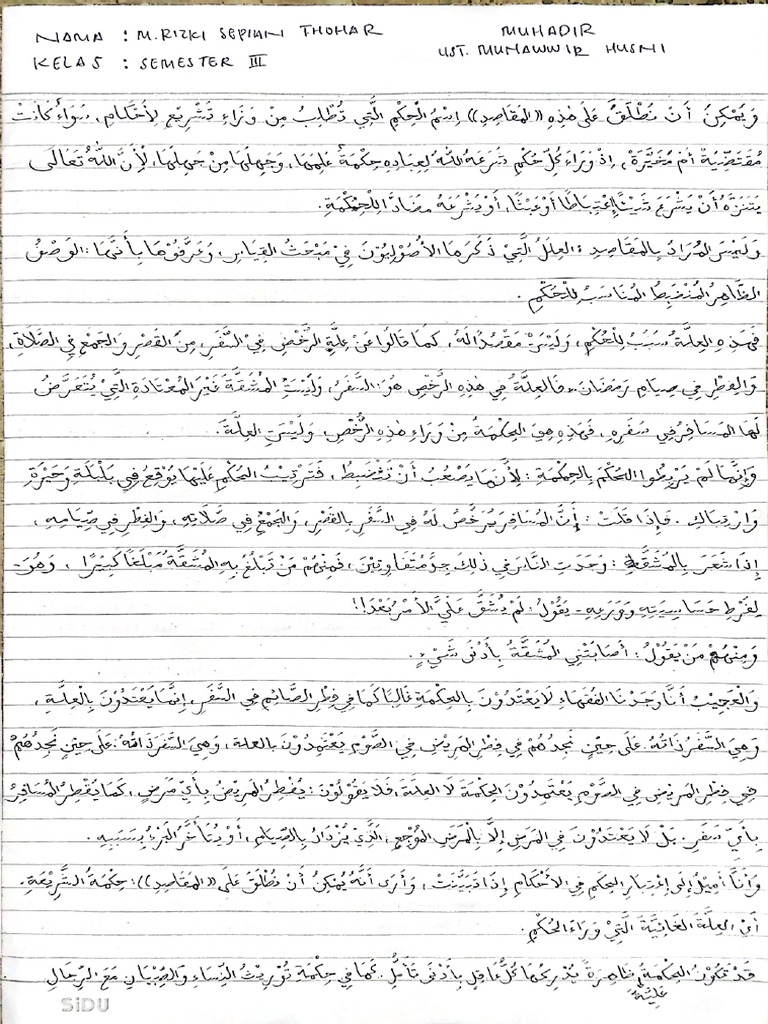 NAMA : M. RIZKI SEPIAN THOHAR
MUHADIR
KELAS : SEMESTER III
UST. MUNAWWIR HUSNI
وَيُمْكِنُ أَنْ نُطْلَقَ عَلَى هٰذِهِ «المَقَاصِدِ» اِسْمُ الْحِكَمِ الَّتِي تُطْلَبُ مِنْ وَرَاءِ تَشْرِيْعِ لأَحْكَامِ، سَوَاءٌ كَانَتْ
مُقْتَضِيَةً أَمْ مُخَيَّرَةً، إِذْ وَرَاءَ كُلِّ حُكْمٍ شَرَعَهُ اللهُ لِعِبَادِهِ حِكْمَةٌ عَلِمَهَا، وَجَهِلَهَا مَنْ جَهِلَهَا، لِأَنَّ اللهَ تَعَالَى
يَتَنَزَّهُ أَنْ يَشْرَعَ شَيْئًا اِعْتِبَاطًا أَوْ عَبَثًا، أَوْ يَشْرَعَهُ مُضَادًّا لِلْحِكْمَةِ.
وَلَيْسَ المُرَادُ بِالمَقَاصِدِ: العِلَلُ الَّتِيْ ذَكَرَهَا الأُصُوْلِيُّوْنَ فِيْ مَبْحَثِ القِيَاسِ، وَعَرَّفُوْهَا بِأَنَّهَا: الوَصْفُ
الظَّاهِرُ المُنْضَبِطُ المُنَاسَبُ لِلْحُكْمِ.
فَهٰذِهِ العِلَّةُ سَبَبٌ لِلْحُكْمِ، وَلَيْسَتْ مَقْصُدًا لَهُ، كَمَا قَالُوا عَنْ عِلَّةِ الرُّخَصِ فِيْ السَّفَرِ، مِنَ القَصْرِ وَالجَمْعِ فِي الصَّلَاةِ،
وَالفِطْرِ فِي صِيَامِ رَمَضَانَ، فَالعِلَّةُ فِي هٰذِهِ الرُّخَصِ هُوَ: السَّفَرُ، وَلَيْسَتِ المُشَقَّةَ غَيْرَ المُعْتَادَةِ الَّتِيْ يُتَعَرَّضُ
لَهَا المُسَافِرُ فِي سَفَرِهِ، فَهٰذِهِ هِيَ الحِكْمَةُ مِنْ وَرَاءِ هٰذِهِ الرُّخَصِ، وَلَيْسَتِ العِلَّةَ.
وَإِنَّمَا لَمْ يَرْبِطُوا الحُكْمَ بِالحِكْمَةِ: لِأَنَّهَا يَصْعُبُ أَنْ تَنْضَبِطَ، فَتَرْتِيْبُ الحُكْمِ عَلَيْهَا يُوْقِعُ فِي بَلْبَلَةٍ وَحَيْرَةٍ
وَارْتِبَاكٍ. فَإِذَا قُلْتَ: إِنَّ المُسَافِرَ يُرَخَّصُ لَهُ فِي السَّفَرِ بِالقَصْرِ، وَالجَمْعُ فِي صَلَاتِهِ، وَالفِطْرِ فِي صِيَامِهِ،
إِذَا شَعَرَ بِالمَشَقَّةِ: وَجَدْتَ النَّاسَ فِي ذٰلِكَ جِدَّ مُتَفَاوِتِيْنَ، فَمِنْهُمْ مَنْ تَبْلُغُ بِهِ المُشَقَّةُ مَبْلَغًا كَبِيْرًا، وَهُوَ-
لِفَرْطِ حَسَاسِيَتِهِ وَوَرَعِهِ- يَقُوْلُ: لَمْ يُشَقَّ عَلَيَّ الأَمْرُ بَعْدَ!!
وَمِنْهُمْ مَنْ يَقُوْلُ: أَصَابَتْنِي المُشَقَّةُ بِأَدْنَى شَيْءٍ.
وَالعَجِيْبُ أَنَّا وَجَدْنَا الفُقَهَاءَ لَا يَعْتَدُّوْنَ بِالحِكْمَةِ غَالِبًا كَمَا فِي فِطْرِ الصَّائِمِ فِي السَّفَرِ، إِنَّمَا يَعْتَدُّوْنَ بِالعِلَّةِ،
وَهِيَ السَّفَرُ ذَاتُهُ. عَلَى حِيْنِ نَجِدُهُمْ فِي فِطْرِ المَرِيْضِ فِي الصَّوْمِ يَعْتَمِدُوْنَ بالعلة، وَهِيَ السَّفَرُ ذَاتُهُ: عَلَى حِيْنِ نَجِدُهُمْ
فِي فِطْرِ المَرِيْضِ فِي الصَّوْمِ يَعْتَمِدُوْنَ الحِكْمَةَ لَا العِلَّةَ، فَلَا يَقُوْلُوْنَ: يُفْطِرُ المَرِيْضُ بِأَيِّ مَرَضٍ، كَمَا يُفْطِرُ المُسَافِرُ
بِأَيِّ سَفَرٍ. بَلْ لَا يَعْتَدُّوْنَ فِي المَرَضِ إِلَّا بِالْمَرَضِ المُوْجِعِ، الَّذِيْ يُزْدَادُ بِالصِّيَامِ، أَوْ يُتَأَخَّرُ البُرْءُ بِسَبَبِهِ.
وَأَنَا أَمِيْلُ إِلَى اعْتِبَارِ الحِكَمِ فِي الأَحْكَامِ إِذَا تَبَيَّنَتْ، وَأَرَى أَنَّهُ يُمْكِنُ أَنْ نُطْلَقَ عَلَى «المَقَاصِدِ»: حِكْمَةُ الشَّرِيْعَةِ.
أَيْ العِلَّةَ الغَائِيَّةَ الَّتِيْ وَرَاءَ الحُكْمِ.
قَدْ تَكُوْنُ الحِكْمَةُ ظَاهِرَةً يُدْرِكُهَا كُلُّ عَاقِلٍ بِأَدْنَى تَأَمُّلٍ. كَمَا فِي حِكْمَةِ تَوْرِيْثِ النِّسَاءِ وَالصِّبْيَانِ مَعَ الرِّجَالِ
SiDU